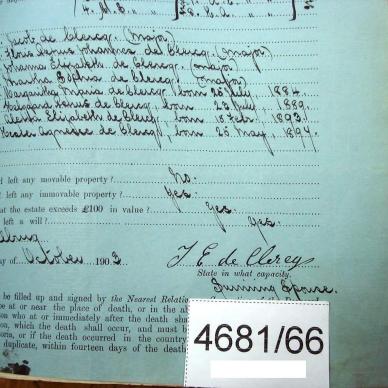 de Clercq. (Major)
Johannes de Clercq. (Major)
Johanna Elizabeth de Clercq. (Major)
Martha Sophia de Clercq (Major)
Margaritha Maria de Clercq, born 25 July 1884.
de Clercq, born 23 July 1889.
Elizabeth de Clercq, born 18 Feb. 1893.
de Clercq, born 25 May, 1897.
left any movable property?
No.
left any immovable property?
Yes.
at the estate exceeds £100 in value?
Yes.
left a will?
Yes.
ay of October 1903
J E de Clercq
State in what capacity.
Surviving Spouse.
be filled up and signed by the Nearest Relati
e at or near the place of death, or in the
on who at or immediately after the death sha
on, which the death shall occur, and must b
oria, or if the death occurred in the country
duplicate, within fourteen days of the death
4681/66